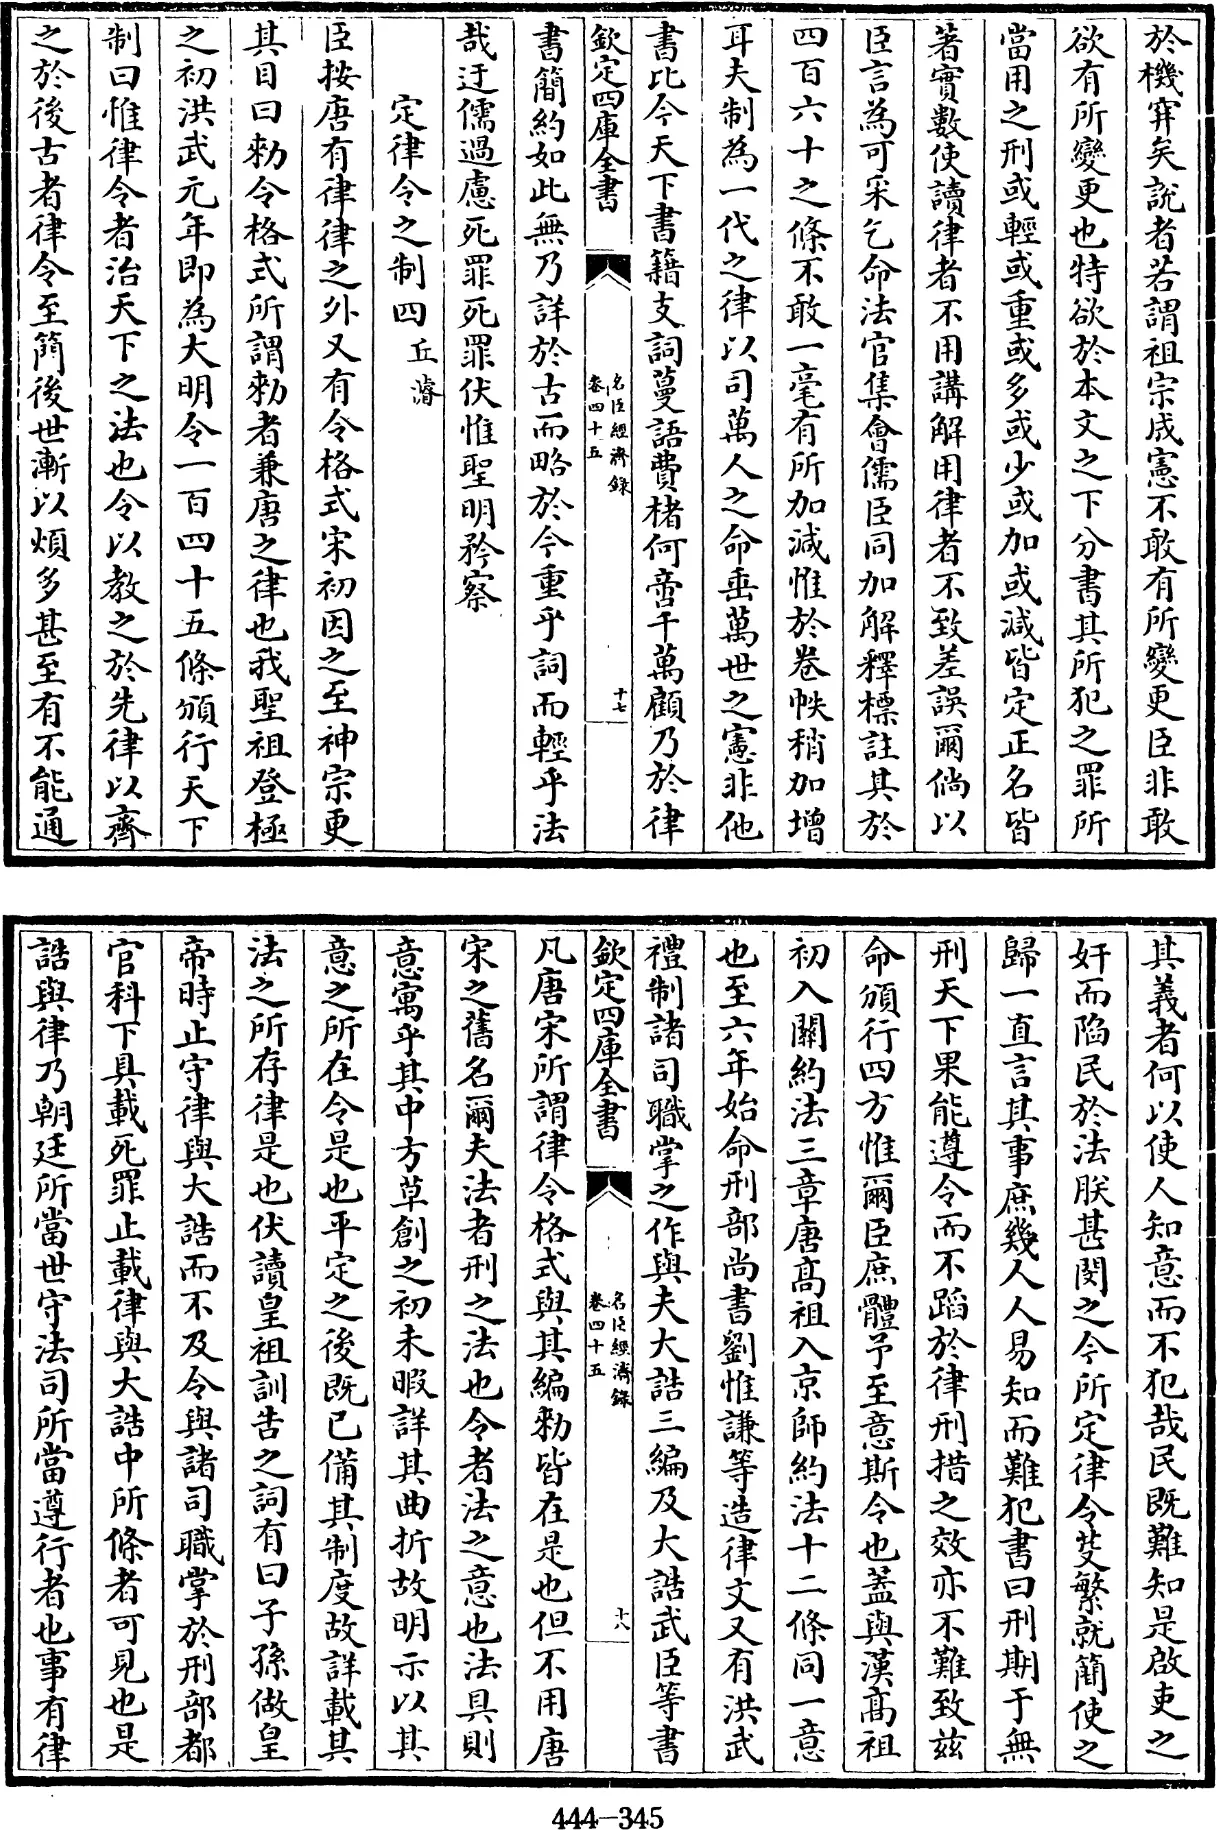 於機穽矣説者若謂祖宗成憲不敢有所變更臣非敢
欲有所變更也特欲於本文之下分書其所犯之罪所
當用之刑或輕或重或多或少或加或減皆定正名皆
著實數使讀律者不用講解用律者不致差誤爾倘以
臣言為可采乞命法官集會儒臣同加解釋標註其於
四百六十之條不敢一毫有所加減惟於卷帙稍加增
耳夫制為一代之律以司萬人之命垂萬世之憲非他
書比今天下書籍支詞蔓語費楮何啻千萬顧乃於律
欽定四庫全書
名臣經濟録
卷四十五
十七
書簡約如此無乃詳於古而略於今重乎詞而輕乎法
哉迂儒過慮死罪死罪伏惟聖明矜察
定律令之制四 丘濬
臣按唐有律律之外又有令格式宋初因之至神宗更
其目曰勅令格式所謂勅者兼唐之律也我聖祖登極
之初洪武元年即為大明令一百四十五條頒行天下
制曰惟律令者治天下之法也令以教之於先律以齊
之於後古者律令至簡後世漸以煩多甚至有不能通
其義者何以使人知意而不犯哉民既難知是啟吏之
奸而陷民於法朕甚閔之今所定律令芟繁就簡使之
歸一直言其事庶幾人人易知而難犯書曰刑期于無
刑天下果能遵令而不蹈於律刑措之效亦不難致兹
命頒行四方惟爾臣庶體予至意斯令也蓋與漢髙祖
初入關約法三章唐髙祖入京師約法十二條同一意
也至六年始命刑部尚書劉惟謙等造律文又有洪武
禮制諸司職掌之作與夫大誥三編及大誥武臣等書
欽定四庫全書
名臣經濟録
卷四十五
十八
凡唐宋所謂律令格式與其編勅皆在是也但不用唐
宋之舊名爾夫法者刑之法也令者法之意也法具則
意寓乎其中方草創之初未暇詳其曲折故明示以其
意之所在令是也平定之後既已備其制度故詳載其
法之所存律是也伏讀皇祖訓告之詞有曰子孫做皇
帝時止守律與大誥而不及令與諸司職掌於刑部都
官科下具載死罪止載律與大誥中所條者可見也是
誥與律乃朝廷所當世守法司所當遵行者也事有律
444-345